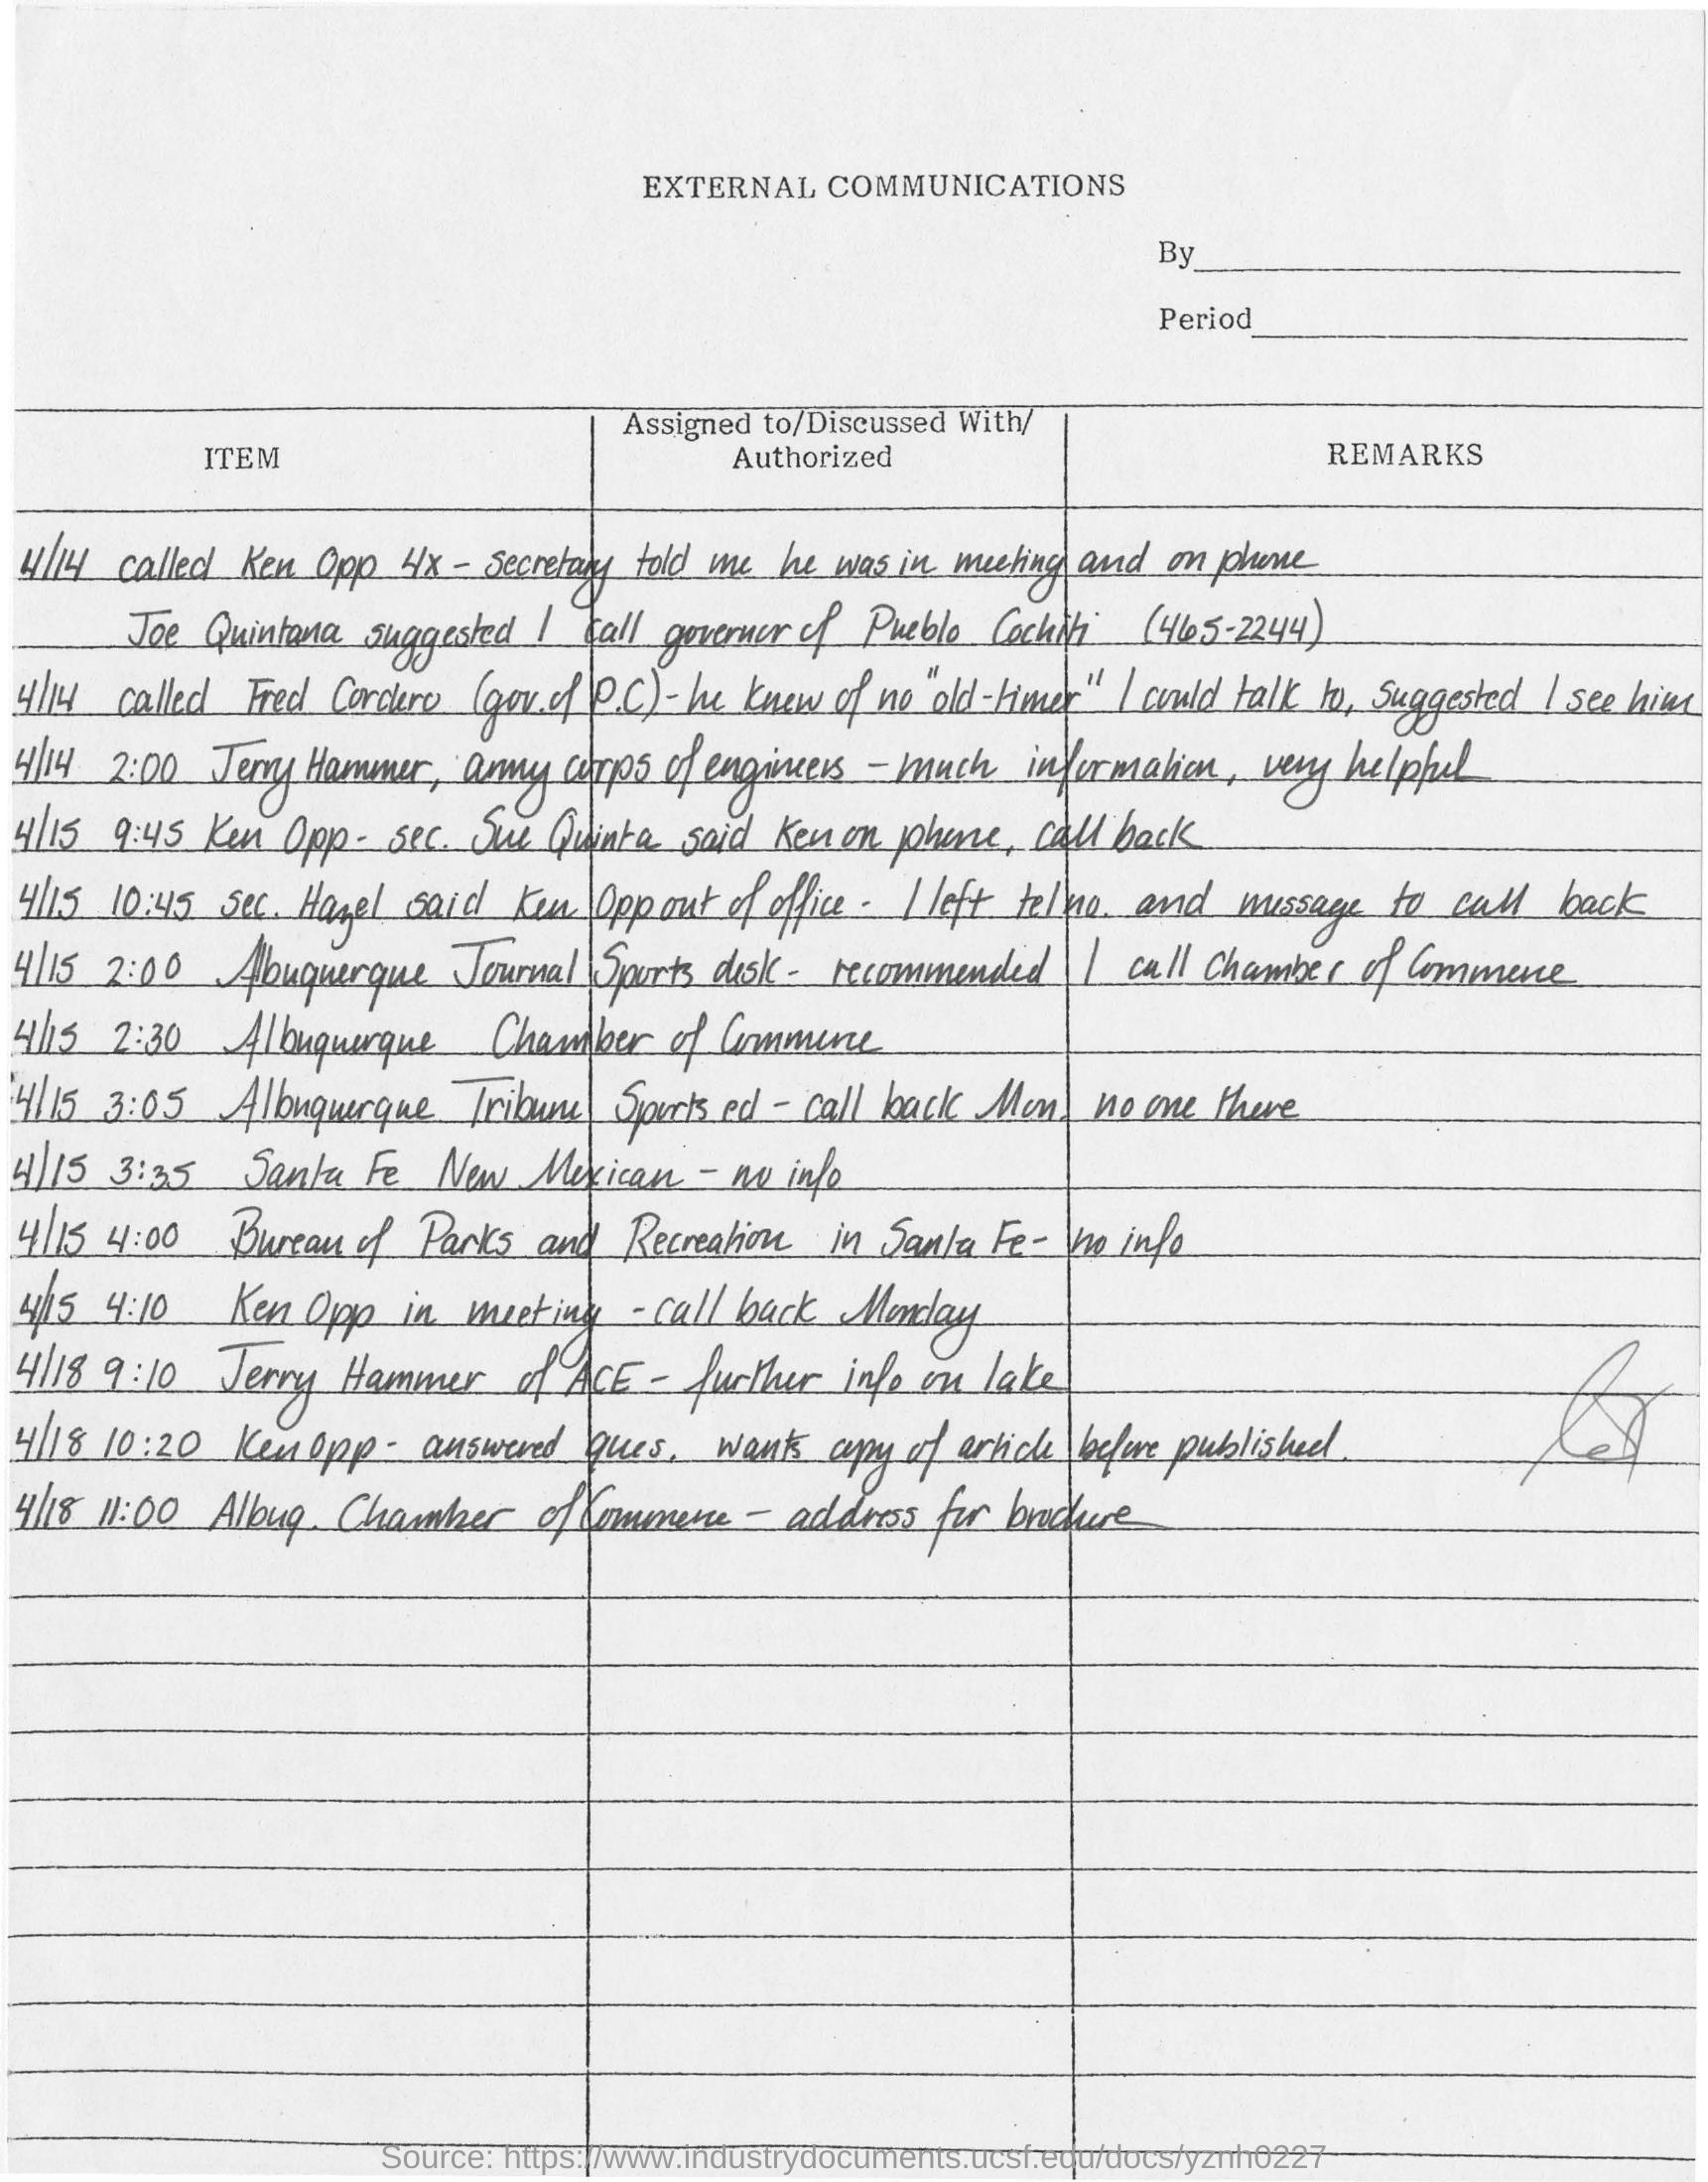 EXTERNAL COMMUNICATIONS
By
Period
ITEM
Assigned to/Discussed With/
Authorized
REMARKS
4/14 called Ken Opp 4x - secretary told me he was in meeting and on phone
Joe Quintana suggested I call governor of Pueblo Cochiti (465-2244)
4/14 called Fred Cordero (gov. of P.C) - he knew of no "old-timer" I could talk to, suggested I see him
4/14 2:00 Jerry Hammer, army corps of engineers - much information, very helpful
4/15 9:45 Ken Opp - sec. Sue Quinta said Ken on phone, call back
4/15 10:45 sec. Hazel said Ken Opp out of office - I left tel no. and message to call back
4/15 2:00 Albuquerque Journal Sports desk - recommended I call Chamber of Commerce
4/15 2:30 Albuquerque Chamber of Commerce
4/15 3:05 Albuquerque Tribune Sports ed - call back Mon. no one there
4/15 3:35 Santa Fe New Mexican - no info
4/15 4:00 Bureau of Parks and Recreation in Santa Fe - no info
4/15 4:10 Ken Opp in meeting - call back Monday
4/18 9:10 Jerry Hammer of ACE - further info on lake
4/18 10:20 Ken Opp - answered ques. wants copy of article before published.
4/18 11:00 Albuq. Chamber of Commerce - address for brochure
Source: https://www.industrydocuments.ucsf.edu/docs/yznh0227